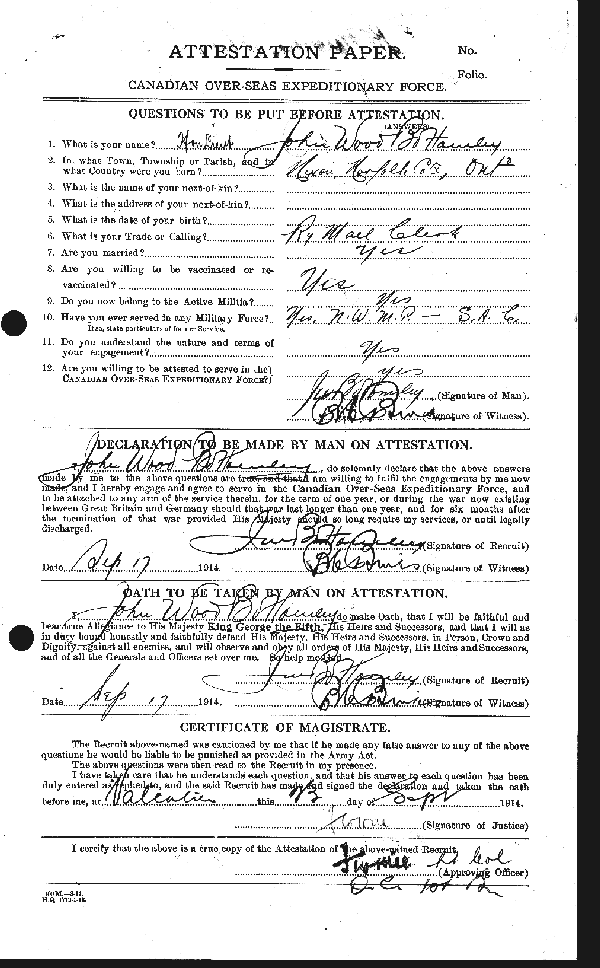 ATTESTATION PAPER.
No.
Folio.
CANADIAN OVER-SEAS EXPEDITIONARY FORCE.
QUESTIONS TO BE PUT BEFORE ATTESTATION.
(ANSWERS)
1. What is your name? John Wood
2. In what Town, Township or Parish, and in
what Country were you born? Norfolk Co, Ont
3. What is the name of your next-of-kin?
4. What is the address of your next-of-kin?
5. What is the date of your birth?
6. What is your Trade or Calling? Ry Mail Clerk
7. Are you married? Yes
8. Are you willing to be vaccinated or re-
vaccinated? Yes
9. Do you now belong to the Active Militia? Yes
10. Have you ever served in any Military Force? Yes. N.W.M.P. — S.A.C.
If so, state particulars of former Service.
11. Do you understand the nature and terms of
your engagement? Yes
12. Are you willing to be attested to serve in the
CANADIAN OVER-SEAS EXPEDITIONARY FORCE? yes
(Signature of Man).
(Signature of Witness).
DECLARATION TO BE MADE BY MAN ON ATTESTATION.
John Wood, do solemnly declare that the above answers
made by me to the above questions are true and that I am willing to fulfil the engagements by me now
made, and I hereby engage and agree to serve in the Canadian Over-Seas Expeditionary Force, and
to be attached to any arm of the service therein, for the term of one year, or during the war now existing
between Great Britain and Germany should that war last longer than one year, and for six months after
the termination of that war provided His Majesty should so long require my services, or until legally
discharged.
(Signature of Recruit)
Date Sep 17 1914. (Signature of Witness)
OATH TO BE TAKEN BY MAN ON ATTESTATION.
John Wood do make Oath, that I will be faithful and
bear true Allegiance to His Majesty King George the Fifth, His Heirs and Successors, and that I will as
in duty bound honestly and faithfully defend His Majesty, His Heirs and Successors, in Person, Crown and
Dignity, against all enemies, and will observe and obey all orders of His Majesty, His Heirs and Successors,
and of all the Generals and Officers set over me. So help me God.
(Signature of Recruit)
Date Sep 17 1914. (Signature of Witness)
CERTIFICATE OF MAGISTRATE.
The Recruit above-named was cautioned by me that if he made any false answer to any of the above
questions he would be liable to be punished as provided in the Army Act.
The above questions were then read to the Recruit in my presence.
I have taken care that he understands each question, and that his answer to each question has been
duly entered as replied to, and the said Recruit has made and signed the declaration and taken the oath
before me, at Valcartier this day of Sept 1914.
(Signature of Justice)
I certify that the above is a true copy of the Attestation of the above-named Recruit.
Lt Col
(Approving Officer)